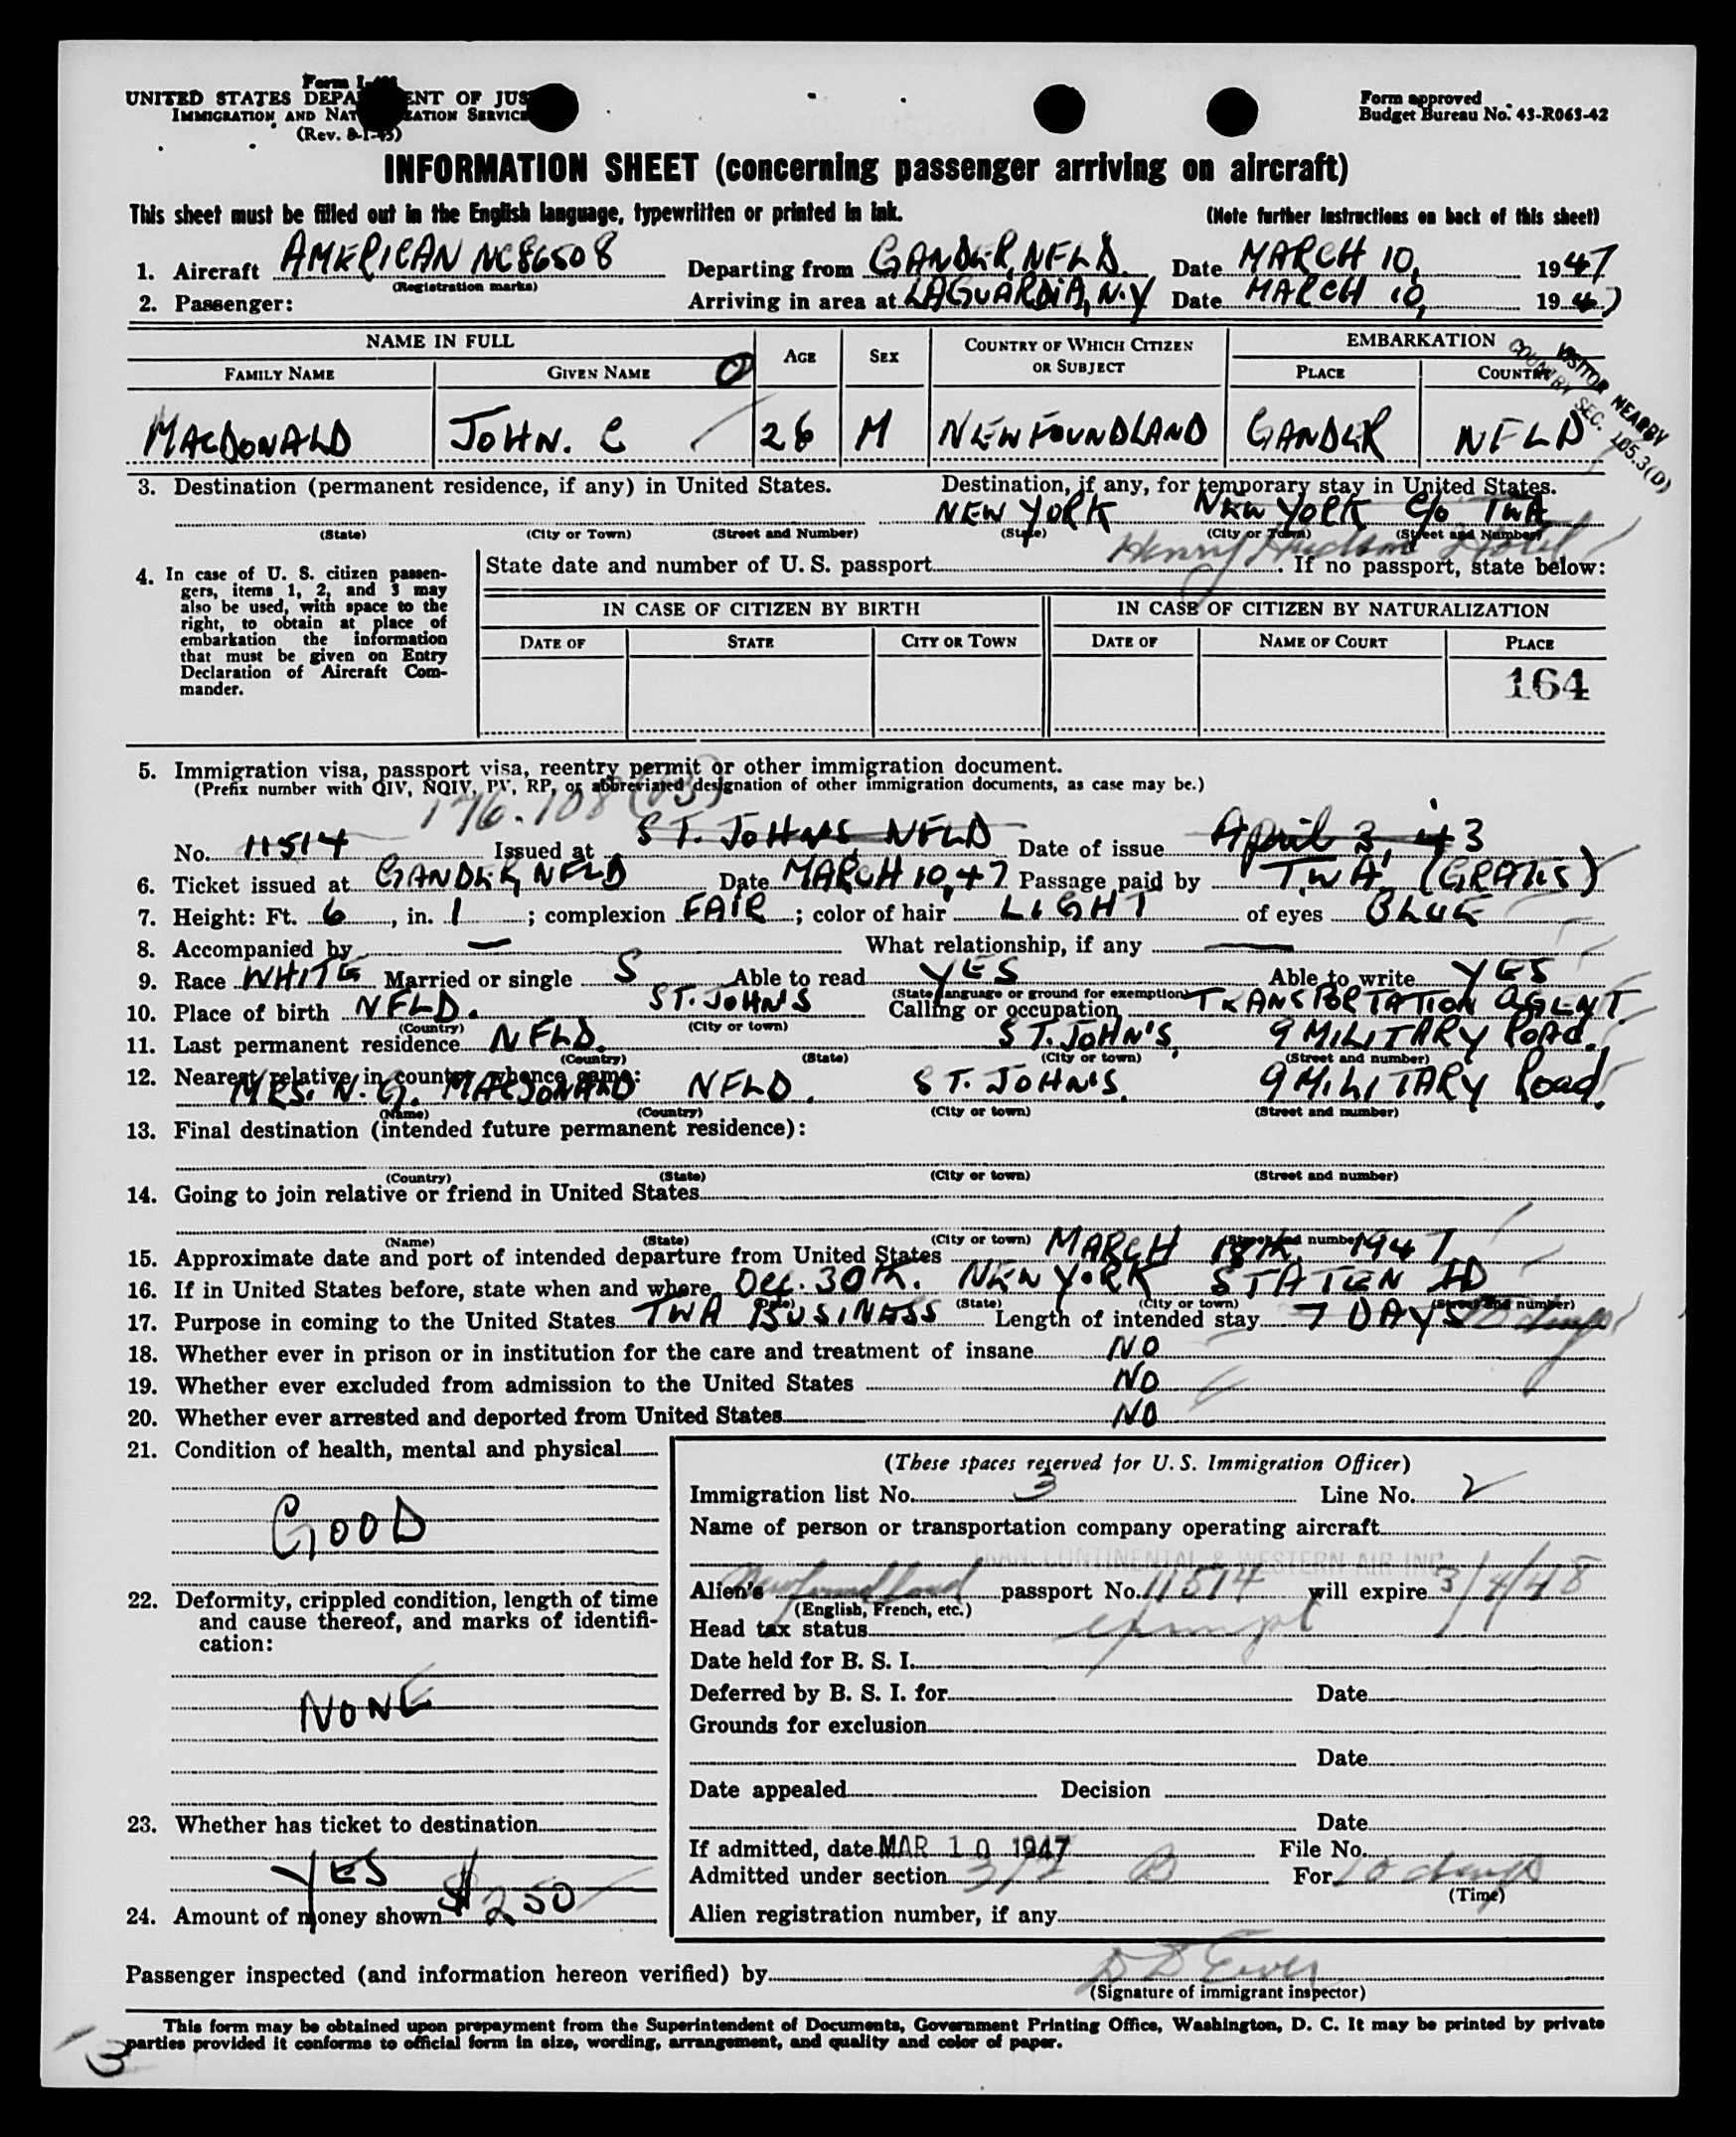 Form I-
UNITED STATES DEPA ENT OF JUS
IMMIGRATION AND NAT ZATION SERVICE
(Rev. 8-1-45)
Form approved
Budget Bureau No. 43-R063-42
INFORMATION SHEET (concerning passenger arriving on aircraft)
This sheet must be filled out in the English language, typewritten or printed in ink. (Note further instructions on back of this sheet)
1. Aircraft AMERICAN NC86508 Departing from GANDER, NFLD. Date MARCH 10, 1947
(Registration marks)
2. Passenger: Arriving in area at LAGUARDIA, N.Y Date MARCH 10, 1947
NAME IN FULL AGE SEX COUNTRY OF WHICH CITIZEN OR SUBJECT EMBARKATION
FAMILY NAME GIVEN NAME PLACE COUNTRY
VISITOR NEARBY
COUNTRY SEC. 105.3(D)
MACDONALD JOHN. C 26 M NEWFOUNDLAND GANDER NFLD
3. Destination (permanent residence, if any) in United States. Destination, if any, for temporary stay in United States.
NEW YORK NEW YORK C/o TWA
(State) (City or Town) (Street and Number) (State) (City or Town) (Street and Number)
Henry Hudson Hotel
4. In case of U. S. citizen passen-
gers, items 1, 2, and 3 may
also be used, with space to the
right, to obtain at place of
embarkation the information
that must be given on Entry
Declaration of Aircraft Com-
mander.
State date and number of U. S. passport. If no passport, state below:
IN CASE OF CITIZEN BY BIRTH IN CASE OF CITIZEN BY NATURALIZATION
DATE OF STATE CITY OR TOWN DATE OF NAME OF COURT PLACE
164
5. Immigration visa, passport visa, reentry permit or other immigration document.
(Prefix number with QIV, NQIV, PV, RP, or abbreviated designation of other immigration documents, as case may be.)
176.108
No. 11514 Issued at ST. JOHNS NFLD Date of issue April 3, 43
6. Ticket issued at GANDER, NFLD Date MARCH 10, 47 Passage paid by T.W.A. (GRATIS)
7. Height: Ft. 6, in. 1; complexion FAIR; color of hair LIGHT of eyes BLUE
8. Accompanied by — What relationship, if any —
9. Race WHITE Married or single S Able to read YES Able to write YES
(State language or ground for exemption)
10. Place of birth NFLD. ST. JOHN'S Calling or occupation TRANSPORTATION AGENT.
(Country) (City or town)
11. Last permanent residence NFLD. ST. JOHN'S, 9 MILITARY ROAD.
(Country) (State) (City or town) (Street and number)
12. Nearest relative in country whence came:
MRS. N. G. MACDONALD NFLD. ST. JOHN'S. 9 MILITARY Road.
(Name) (Country) (City or town) (Street and number)
13. Final destination (intended future permanent residence):
(Country) (State) (City or town) (Street and number)
14. Going to join relative or friend in United States
(Name) (State) (City or town) (Street and number)
15. Approximate date and port of intended departure from United States MARCH 18th. 1947
16. If in United States before, state when and where Dec. 30th. NEW YORK STATEN ID
(Date) (State) (City or town) (Street and number)
17. Purpose in coming to the United States TWA BUSINESS Length of intended stay 7 DAYS days
18. Whether ever in prison or in institution for the care and treatment of insane NO
19. Whether ever excluded from admission to the United States NO
20. Whether ever arrested and deported from United States NO
21. Condition of health, mental and physical
GOOD
22. Deformity, crippled condition, length of time
and cause thereof, and marks of identifi-
cation:
NONE
23. Whether has ticket to destination
YES
24. Amount of money shown $250
(These spaces reserved for U. S. Immigration Officer)
Immigration list No. 3 Line No. 2
Name of person or transportation company operating aircraft
TRANSCONTINENTAL & WESTERN AIR INC
Alien's Newfoundland passport No. 11514 will expire 3/4/48
(English, French, etc.)
Head tax status exempt
Date held for B. S. I.
Deferred by B. S. I. for Date
Grounds for exclusion
Date
Date appealed Decision
Date
If admitted, date MAR 10 1947 File No.
Admitted under section 3/2 B For 10 days
(Time)
Alien registration number, if any
Passenger inspected (and information hereon verified) by
(Signature of immigrant inspector)
This form may be obtained upon prepayment from the Superintendent of Documents, Government Printing Office, Washington, D. C. It may be printed by private
parties provided it conforms to official form in size, wording, arrangement, and quality and color of paper.
3